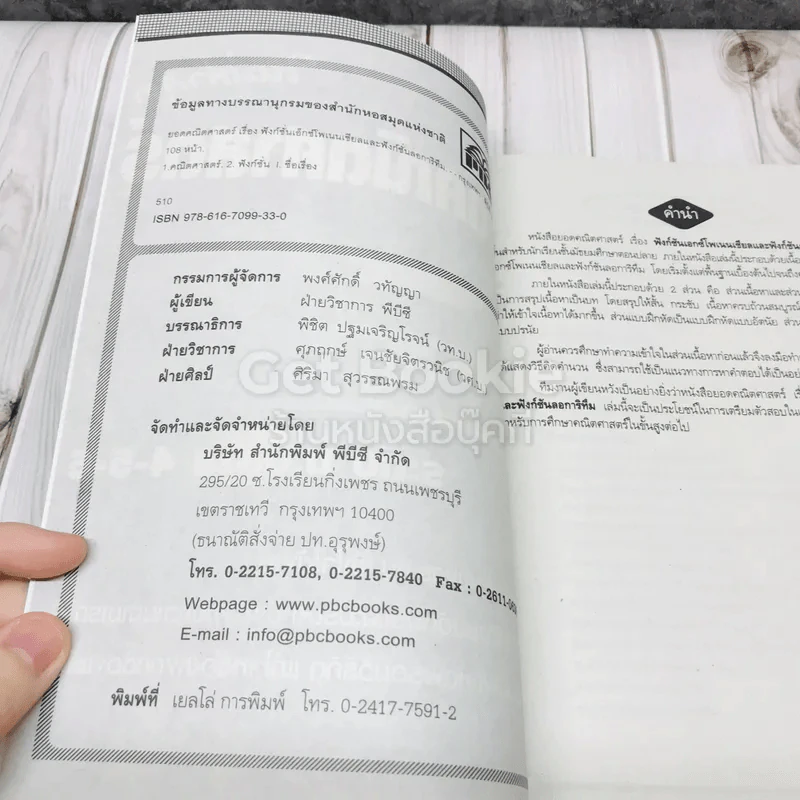 ข้อมูลทางบรรณานุกรมของสำนักหอสมุดแห่งชาติ
ยอดคณิตศาสตร์ เรื่อง ฟังก์ชั่นเอ็กซ์โพเนนเชียลและฟังก์ชั่นลอการิทึม.
108 หน้า.
1.คณิตศาสตร์. 2. ฟังก์ชั่น I. ชื่อเรื่อง
510
ISBN 978-616-7099-33-0
กรรมการผู้จัดการ พงศ์ศักดิ์ วทัญญา
ผู้เขียน ฝ่ายวิชาการ พีบีซี
บรรณาธิการ พิชิต ปฐมเจริญโรจน์ (วท.บ.)
ฝ่ายวิชาการ ศุภฤกษ์ เจนชัยจิตรวนิช
ฝ่ายศิลป์ ศิริมา สุวรรณพรม
จัดทำและจัดจำหน่ายโดย
บริษัท สำนักพิมพ์ พีบีซี จำกัด
295/20 ซ.โรงเรียนกิ่งเพชร ถนนเพชรบุรี
เขตราชเทวี กรุงเทพฯ 10400
(ธนาณัติสั่งจ่าย ปท.อุรุพงษ์)
โทร. 0-2215-7108, 0-2215-7840 Fax : 0-2611-
Webpage : www.pbcbooks.com
E-mail : info@pbcbooks.com
พิมพ์ที่ เยลโล่ การพิมพ์ โทร. 0-2417-7591-2
คำนำ
หนังสือยอดคณิตศาสตร์ เรื่อง ฟังก์ชันเอกซ์โพเนนเชียลและฟังก์ชัน
สำหรับนักเรียนชั้นมัธยมศึกษาตอนปลาย ภายในหนังสือเล่มนี้ประกอบด้วยเนื้อ
เอกซ์โพเนนเชียลและฟังก์ชันลอการิทึม โดยเริ่มตั้งแต่พื้นฐานเบื้องต้นไปจนถึง
ภายในหนังสือเล่มนี้ประกอบด้วย 2 ส่วน คือ ส่วนเนื้อหาและส่วน
เป็นการสรุปเนื้อหาเป็นบท โดยสรุปให้สั้น กระชับ เนื้อหาครบถ้วนสมบูรณ์
ให้เข้าใจเนื้อหาได้มากขึ้น ส่วนแบบฝึกหัดเป็นแบบฝึกหัดแบบอัตนัย ส่วน
แบบปรนัย
ผู้อ่านควรศึกษาทำความเข้าใจในส่วนเนื้อหาก่อนแล้วจึงลงมือทำ
ได้แสดงวิธีคิดคำนวน ซึ่งสามารถใช้เป็นแนวทางการหาคำตอบได้เป็นอย่า
ทีมงานผู้เขียนหวังเป็นอย่างยิ่งว่าหนังสือยอดคณิตศาสตร์
และฟังก์ชันลอการิทึม เล่มนี้จะเป็นประโยชน์ในการเตรียมตัวสอบใน
สำหรับการศึกษาคณิตศาสตร์ในชั้นสูงต่อไป
Get Bookie
ร้านหนังสือบุ๊คกี้